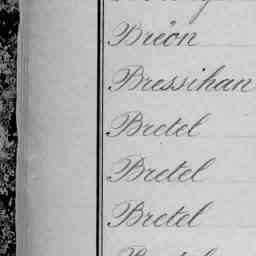 Bréon
Bressihan
Bretel
Bretel
Bretel